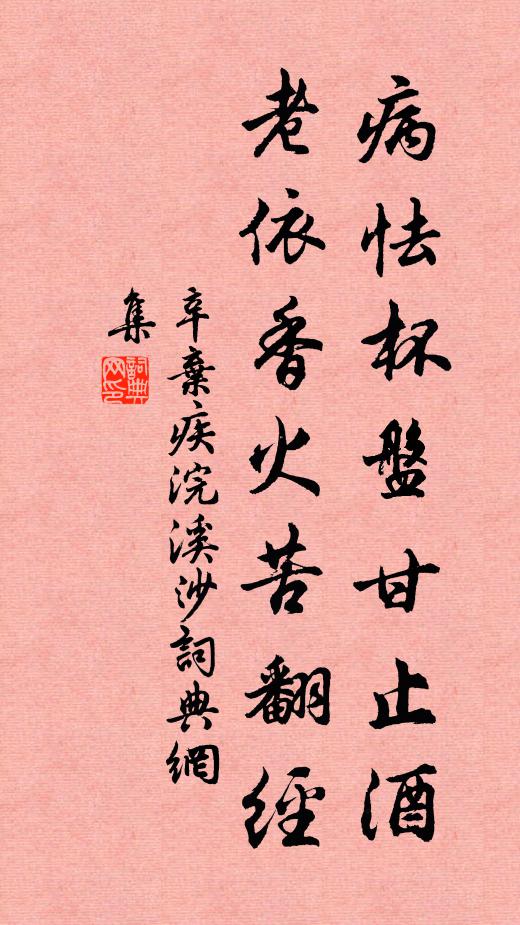 病怯杯盤甘止酒
老依香火苦翻經
辛棄疾浣溪沙詞典網
集
詞典網印